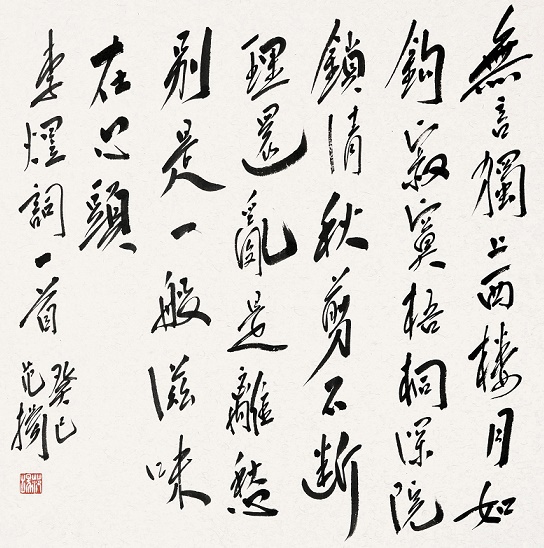 無言獨上西樓月如
鈎寂寞梧桐深院
鎖清秋剪不斷
理還亂是離愁
别是一般滋味
在心頭
李煜詞一首
癸巳
范揚